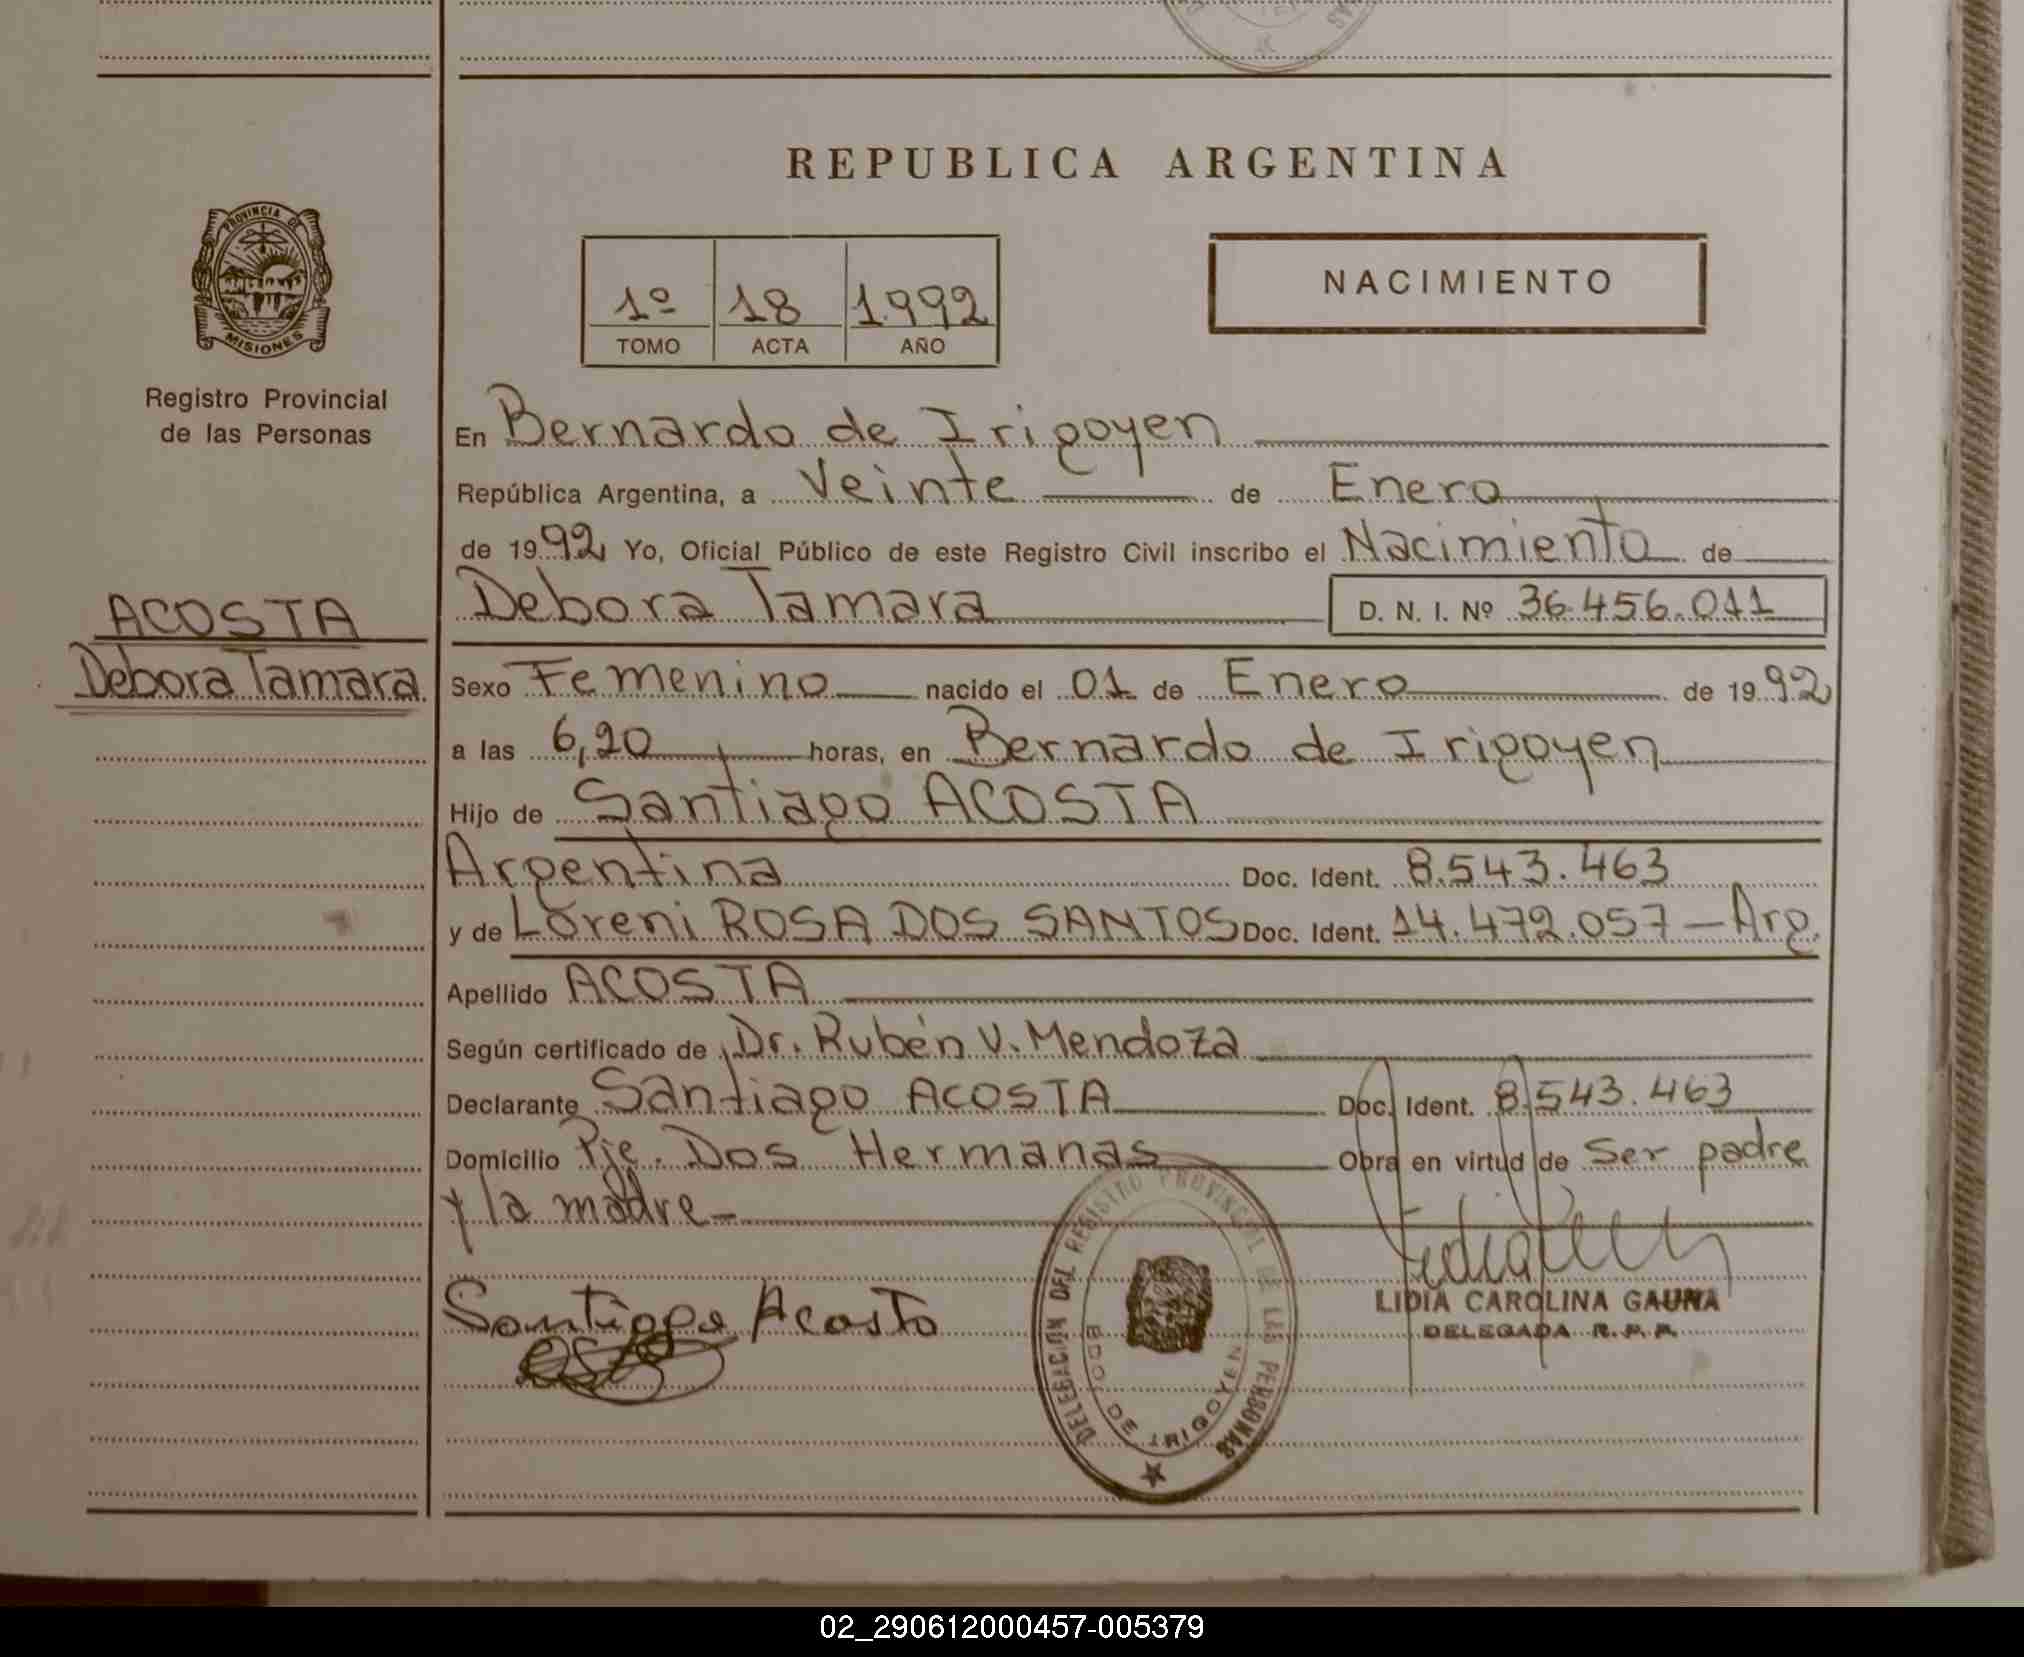 REPUBLICA ARGENTINA
PROVINCIA DE
MISIONES
Registro Provincial
de las Personas
1º 18 1.992
TOMO ACTA AÑO
NACIMIENTO
En Bernardo de Irigoyen
República Argentina, a Veinte de Enero
de 1992 Yo, Oficial Público de este Registro Civil inscribo el Nacimiento de
ACOSTA
Debora Tamara
Debora Tamara D. N. I. Nº 36.456.011
Sexo Femenino nacido el 01 de Enero de 1992
a las 6,20 horas, en Bernardo de Irigoyen
Hijo de Santiago ACOSTA
Argentina Doc. Ident. 8.543.463
y de Loreni ROSA DOS SANTOS Doc. Ident. 14.472.057 - Arg.
Apellido ACOSTA
Según certificado de Dr. Rubén V. Mendoza
Declarante Santiago ACOSTA Doc. Ident. 8.543.463
Domicilio Pje. Dos Hermanas Obra en virtud de Ser padre
y la madre -
Santiago Acosta
DELEGACIÓN DEL REGISTRO PROVINCIAL DE LAS PERSONAS
BDO. DE IRIGOYEN
LIDIA CAROLINA GAUNA
DELEGADA R. P. P.
02_290612000457-005379